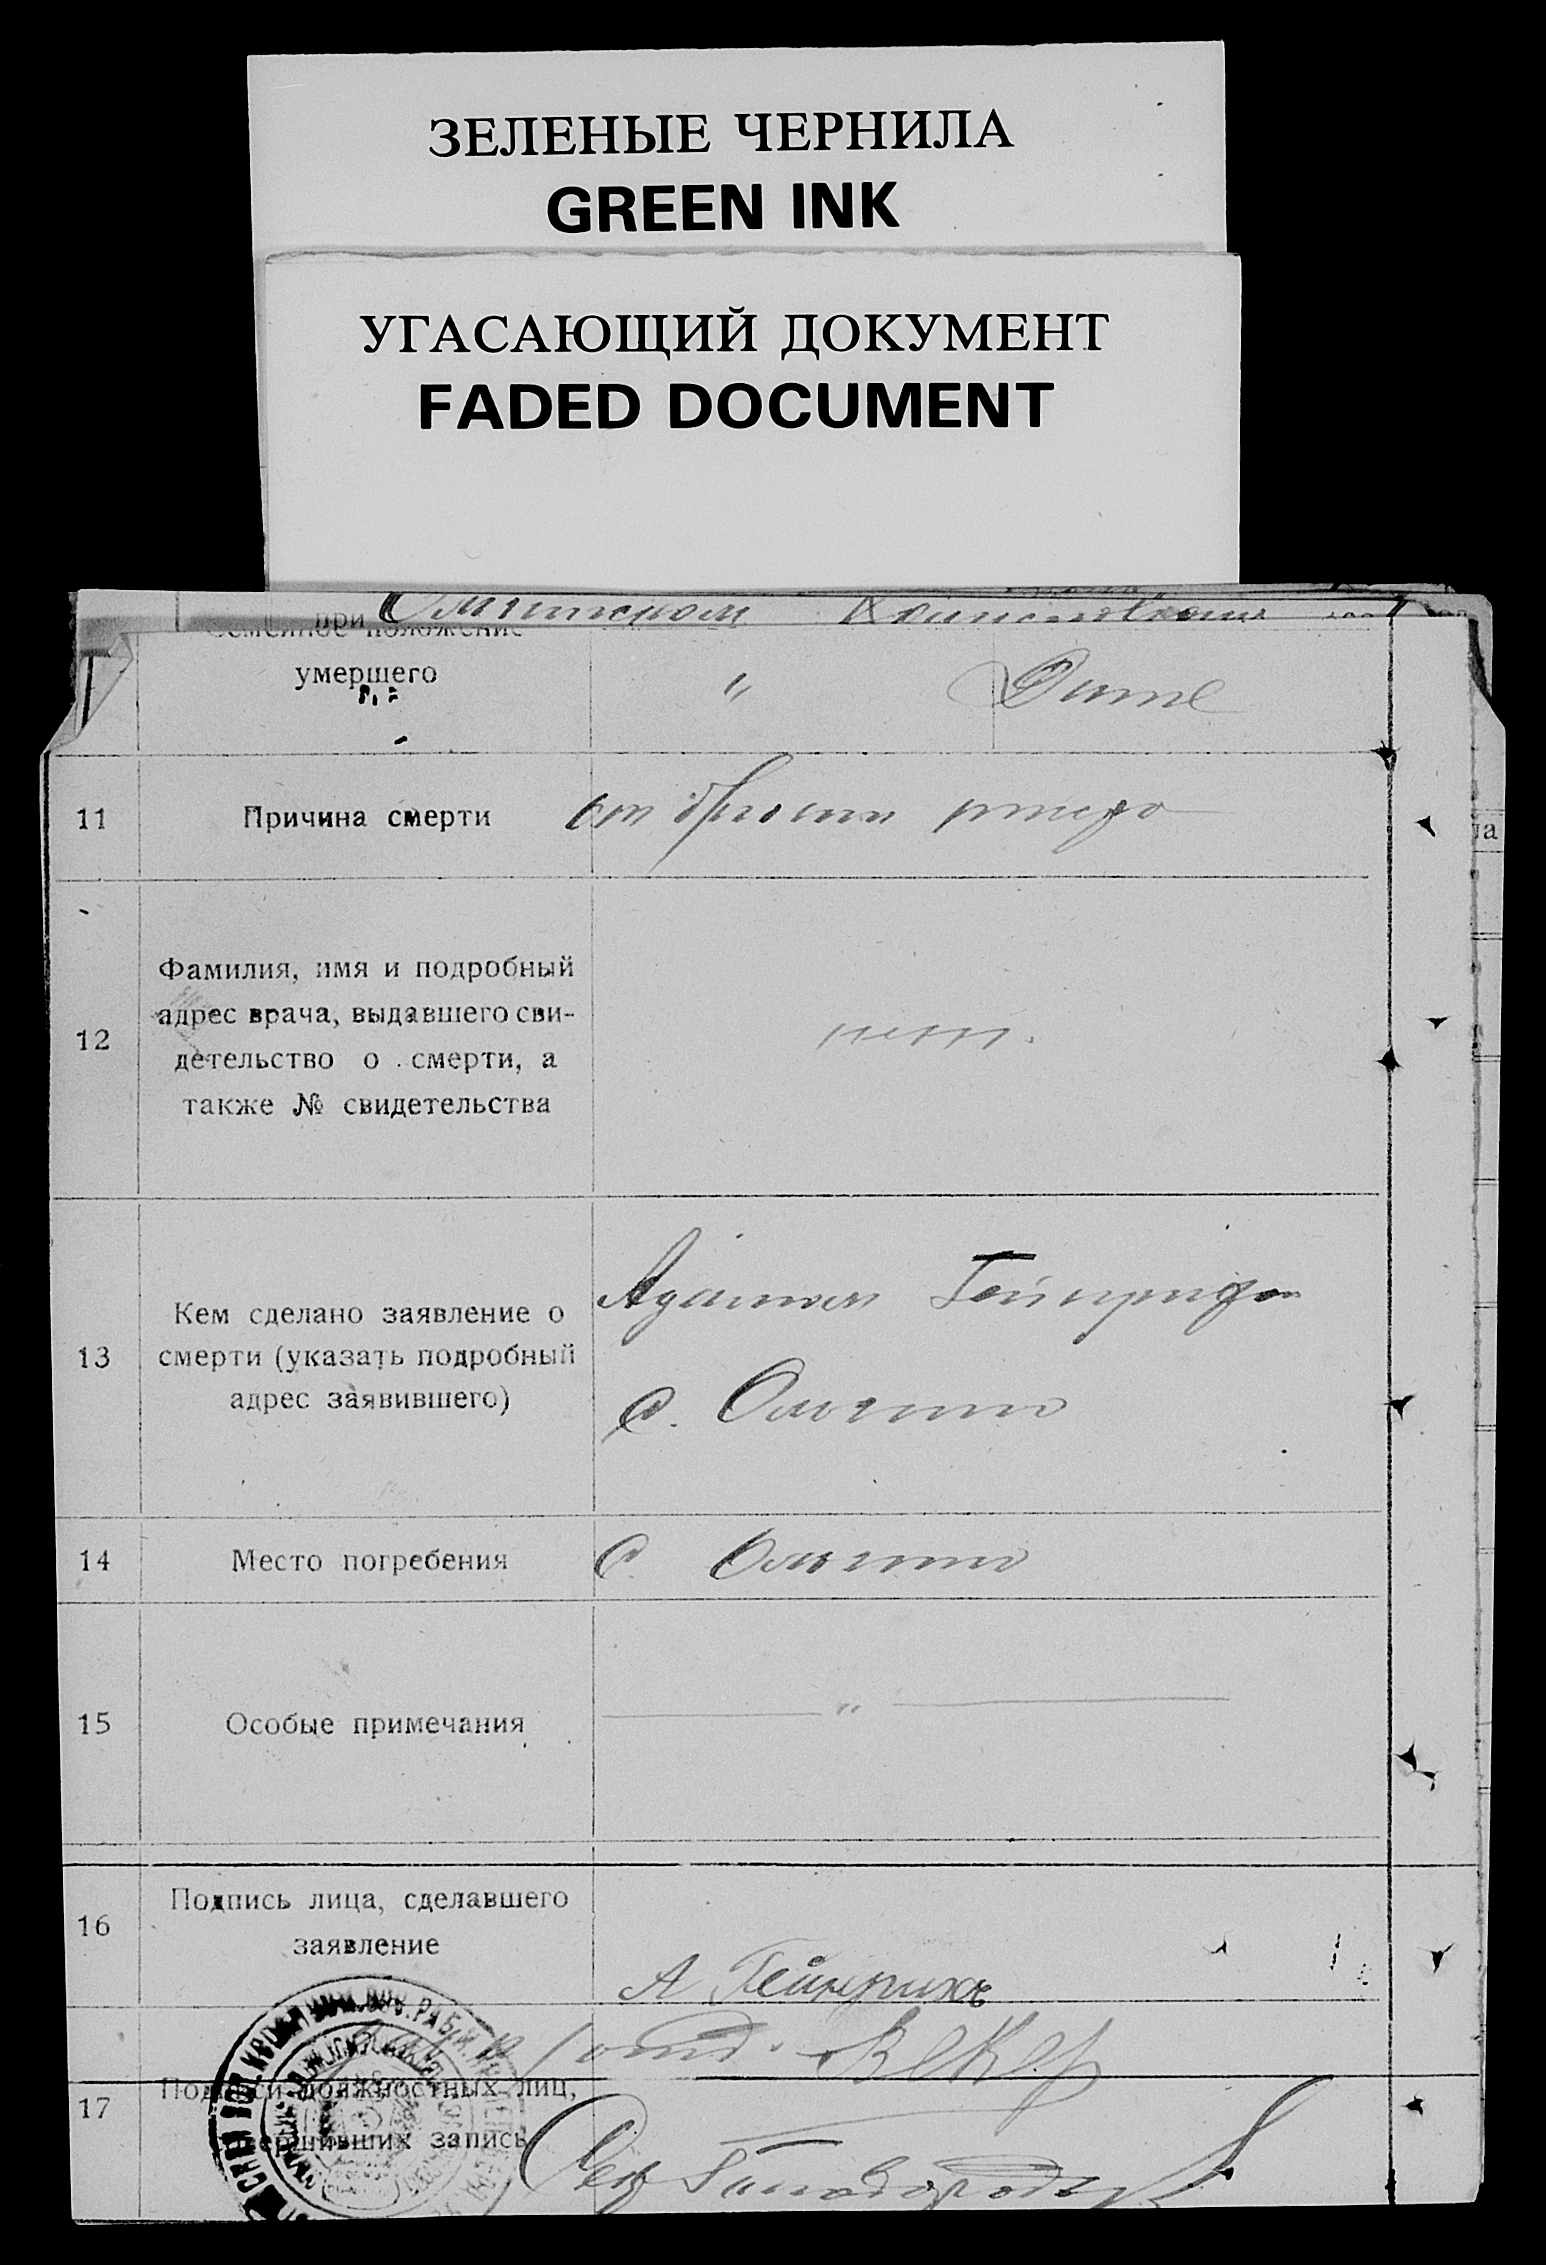 ЗЕЛЕНЫЕ ЧЕРНИЛА
GREEN INK
УГАСАЮЩИЙ ДОКУМЕНТ
FADED DOCUMENT
при
Семейное положение
умершего
" Дите
11 Причина смерти
12 Фамилия, имя и подробный
адрес врача, выдавшего сви-
детельство о смерти, а
также № свидетельства
нет.
13 Кем сделано заявление о
смерти (указать подробный
адрес заявившего)
с. Ольгино
14 Место погребения с Ольгино
15 Особые примечания "
16 Подпись лица, сделавшего
заявление
А Гейнрихъ
17 Подписи должностных лиц,
совершивших запись
Векер
Сек